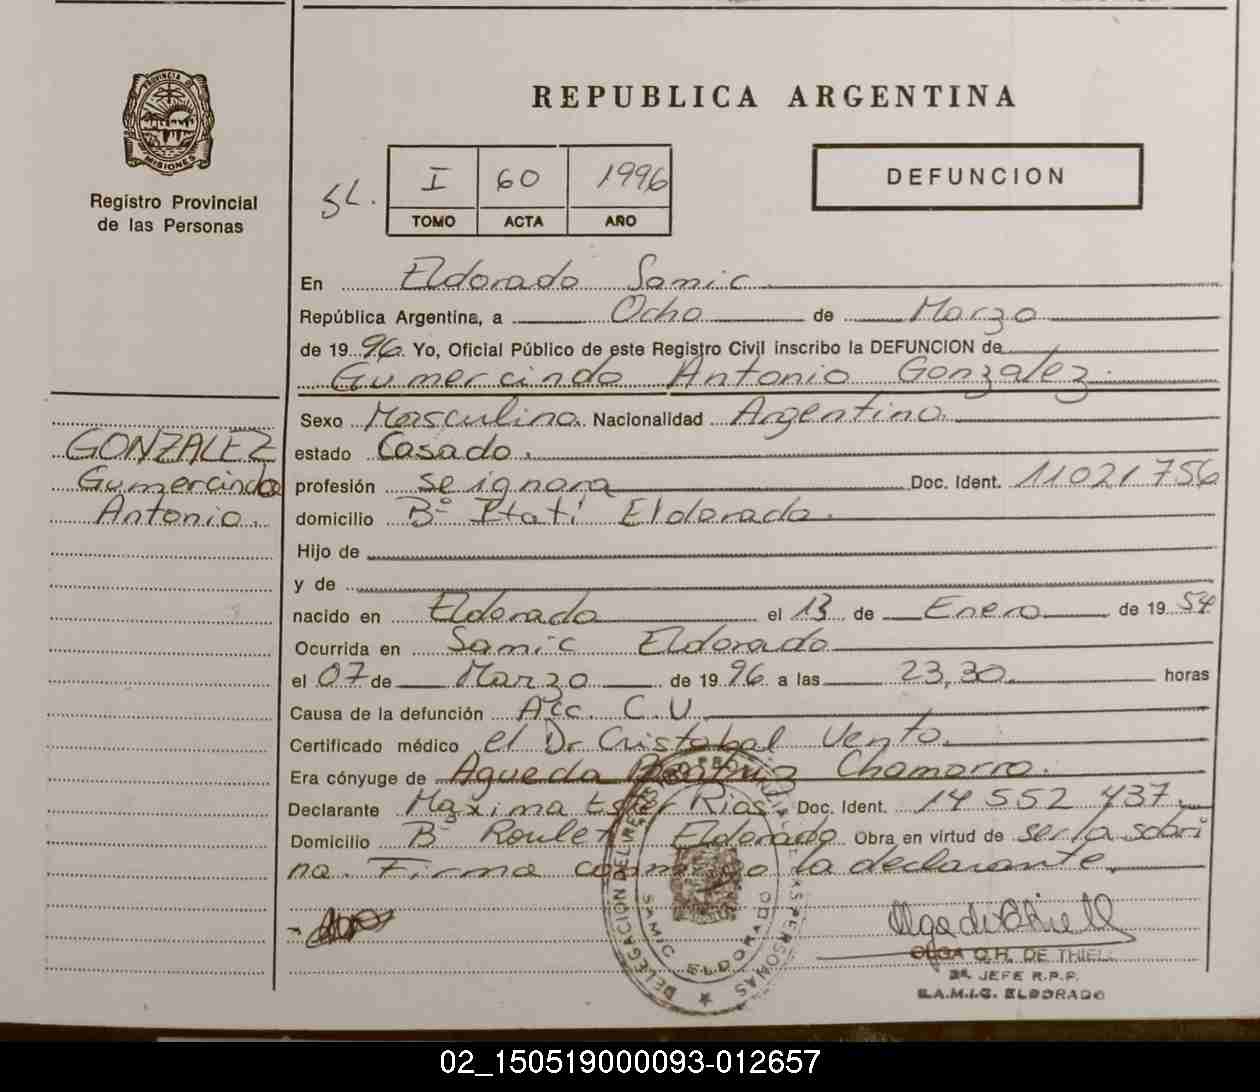 REPUBLICA ARGENTINA
PROVINCIA DE
MISIONES
Registro Provincial
de las Personas
SL.
I 60 1996
TOMO ACTA AÑO
DEFUNCION
En Eldorado Samic
República Argentina, a Ocho de Marzo
de 1996. Yo, Oficial Público de este Registro Civil inscribo la DEFUNCION de
Gumercindo Antonio Gonzalez.
Sexo Masculino. Nacionalidad Argentino.
GONZALEZ
Gumercindo
Antonio.
estado Casado.
profesión se ignora Doc. Ident. 11021756
domicilio Bº Itatí Eldorado.
Hijo de
y de
nacido en Eldorado el 13 de Enero de 1954
Ocurrida en Samic Eldorado
el 07 de Marzo de 1996 a las 23,30 horas
Causa de la defunción Acc. C.V.
Certificado médico el Dr Cristobal Vento.
Era cónyuge de Agueda Beatriz Chamorro.
Declarante Maxima Ester Rios Doc. Ident. 14 552 437.
Domicilio Bº Roulet Eldorado Obra en virtud de ser la sobri
na. Firma conmigo la declarante.
DELEGACION DEL REGISTRO PROVINCIAL DE LAS PERSONAS
SAMIC ELDORADO
OLGA O.H. DE THIELL
2ª JEFE R.P.P.
S.A.M.I.C. ELDORADO
02_150519000093-012657